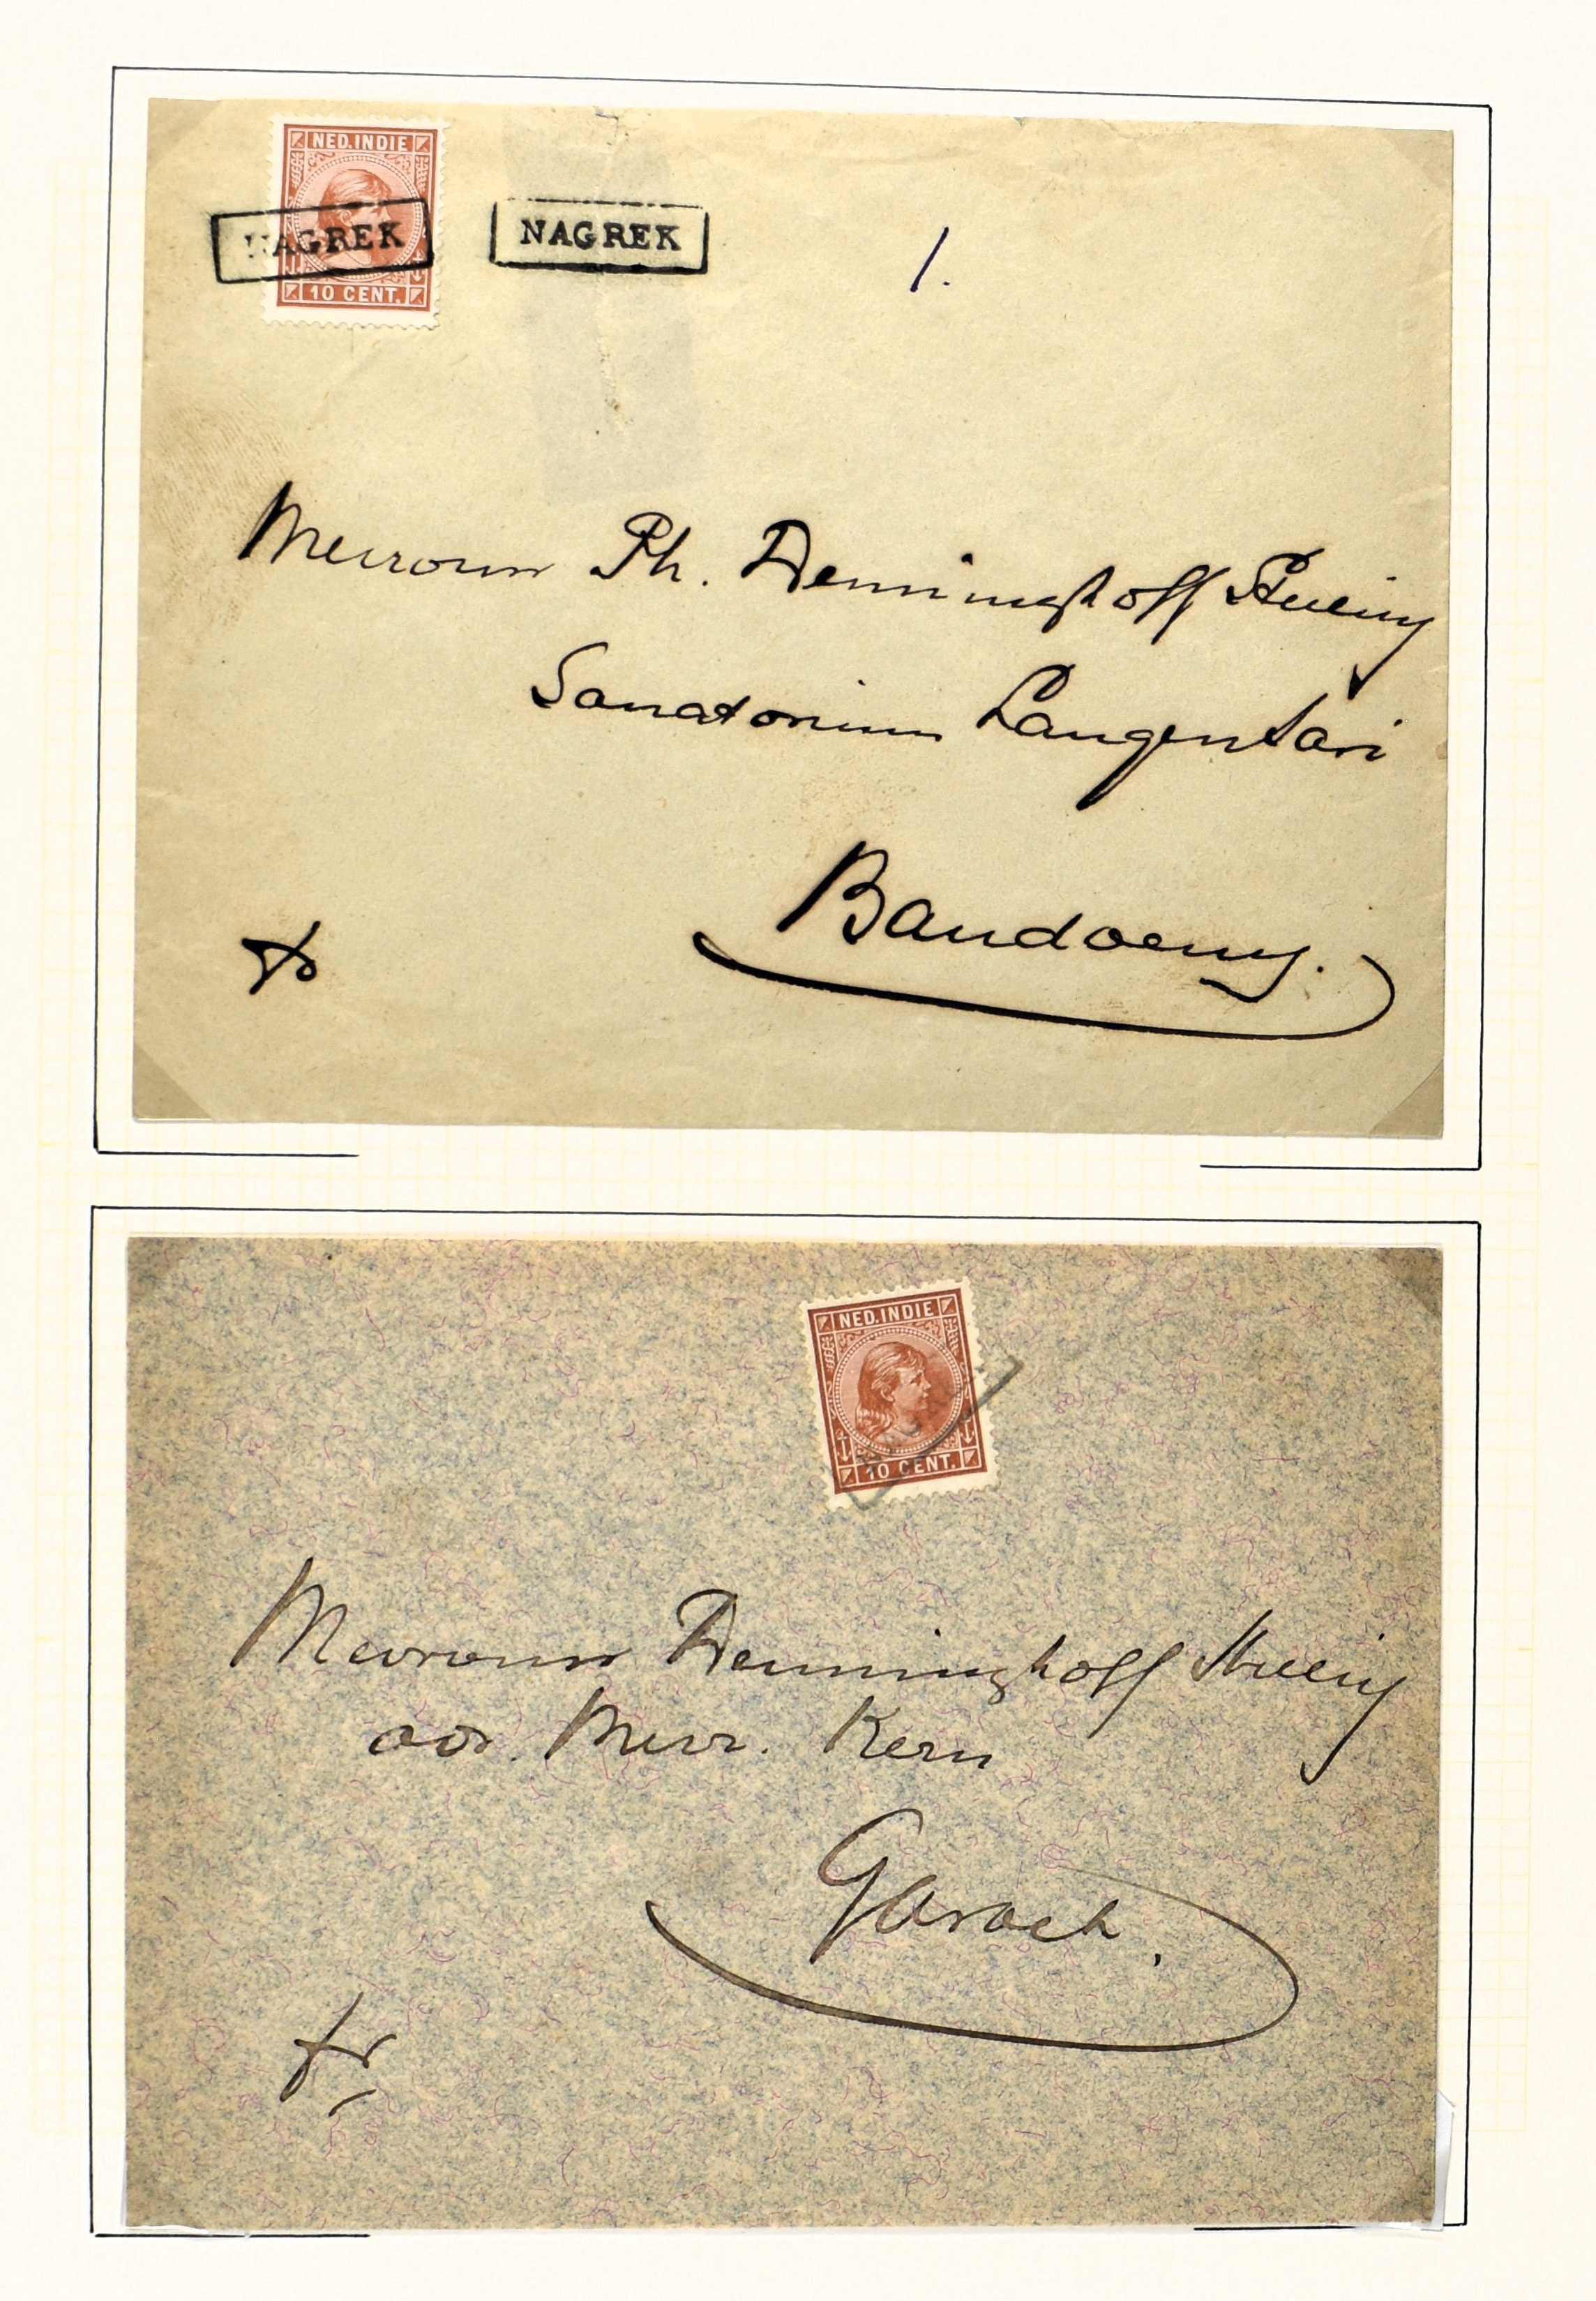 NED. INDIE
10 CENT.
NAGREK
NAGREK
1.
Mevrouw Ph. Denninghoff Stelling
Sanatorium Langensari
Bandoeng.
NED. INDIE
10 CENT.
Mevrouw Denninghoff Stelling
Mevr. Kern
Garoet.